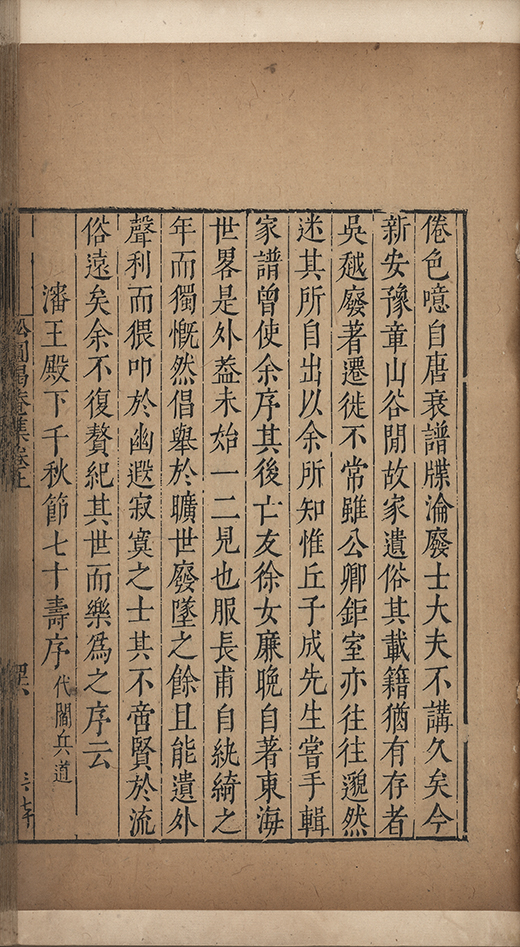 倦色噫自唐衰譜牒淪廢士大夫不講久矣今
新安豫章山谷閒故家遺俗其載籍猶有存者
吳越廢著遷徙不常雖公卿鉅室亦往往邈然
迷其所自出以余所知惟丘子成先生嘗手輯
家譜曾使余序其後亡友徐女廉晚自著東海
世畧是外葢未始一二見也服長甫自紈綺之
年而獨慨然倡舉於曠世廢墜之餘且能遺外
聲利而猥叩於幽遐寂寞之士其不啻賢於流
俗遠矣余不復贅紀其世而樂爲之序云
瀋王殿下千秋節七十壽序 代閻兵道
松圓偈庵集卷上